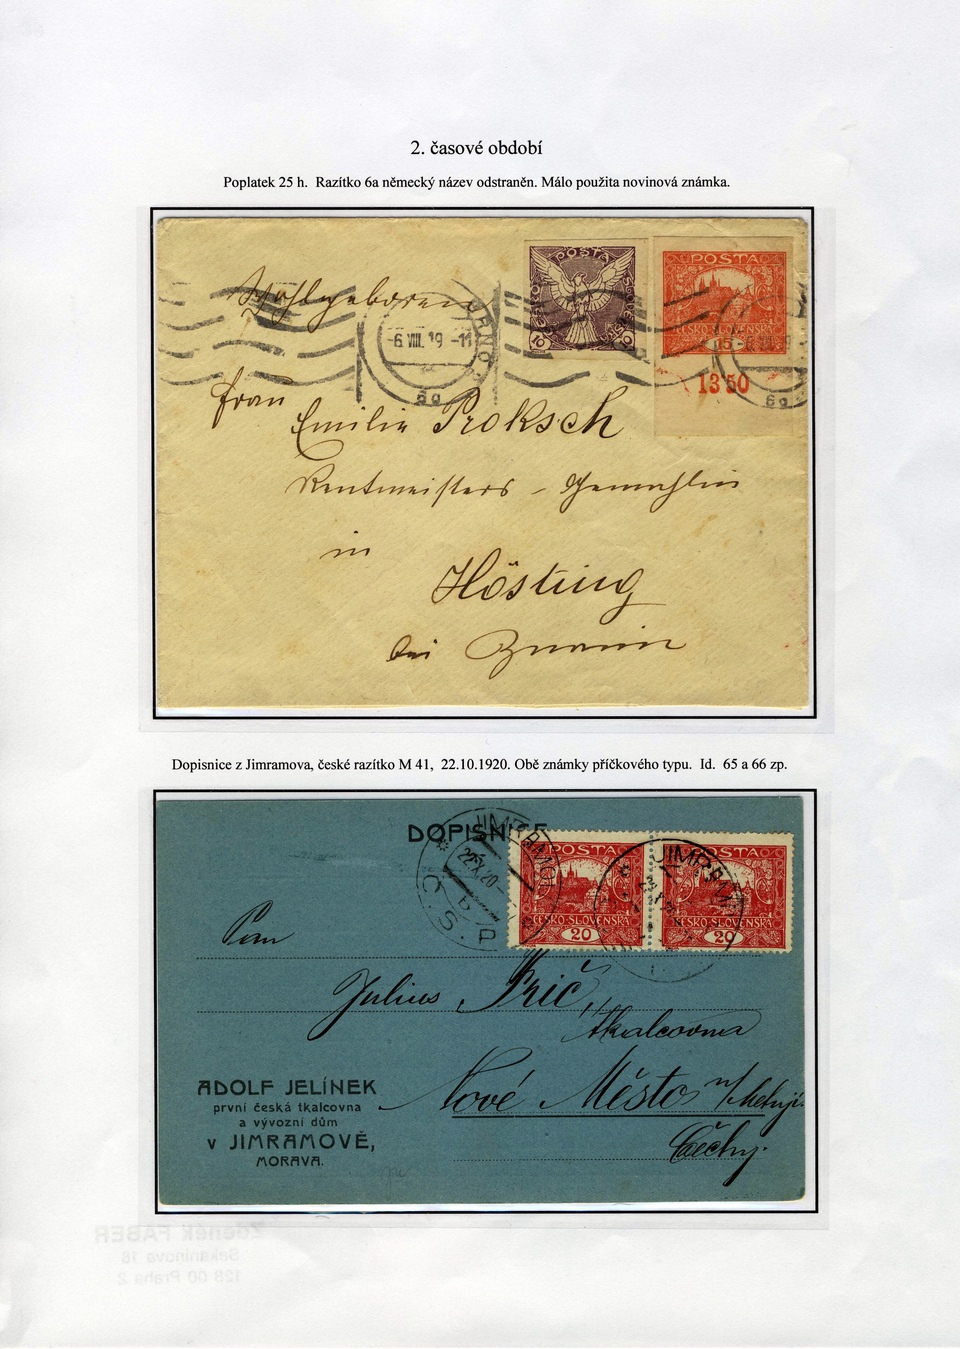 2. časové období
Poplatek 25 h. Razítko 6a německý název odstraněn. Málo použita novinová známka.
POSTA
ČESKO SLOVENSKÁ
10 10
POSTA
ČESKO-SLOVENSKÁ
15
13˙50
BRNO
-6. VIII. 19 -11
6a
6a
Wohlgeboren
Frau
Emilie Proksch
Rentmeisters - Gemahlin
in
Hösting
bei Znaim
Dopisnice z Jimramova, české razítko M 41, 22.10.1920. Obě známky příčkového typu. Id. 65 a 66 zp.
DOPISNICE
JIMRAMOV
22.X.20
b
Č.S.P.
POSTA
ČESKO-SLOVENSKÁ
20
POSTA
ČESKO-SLOVENSKÁ
20
JIMRAM
Pan
Julius Prič,
tkalcovna
Nové Město n/Metují
Čechy.
ADOLF JELÍNEK
první česká tkalcovna
a vývozní dům
v JIMRAMOVĚ,
MORAVA.
Zdeněk FABER
Sekaninova 16
128 00 Praha 2